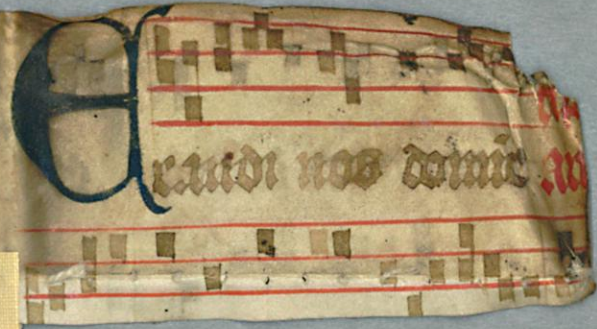 Exaudi nos domīe